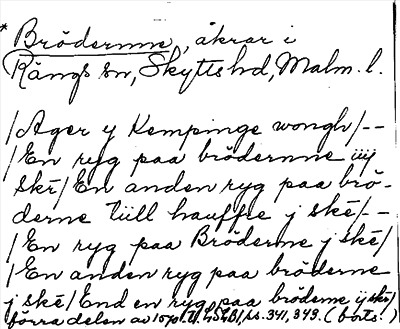 * Brödernne, åkrar i
Rängs sn, Skytts hd, Malm. l.
/Ager y Kempinge wongh/--
/En ryg paa brödernne iiij
skē/En anden ryg paa brö-
derne tüll hauffie j skē/--
/En ryg paa Bröderne j skē/
/En anden ryg paa bröderne
j skē/End en ryg paa bröderne ij skē/
förra delen av 1570 t. LSLB1, ss. 341, 343. (forts.)